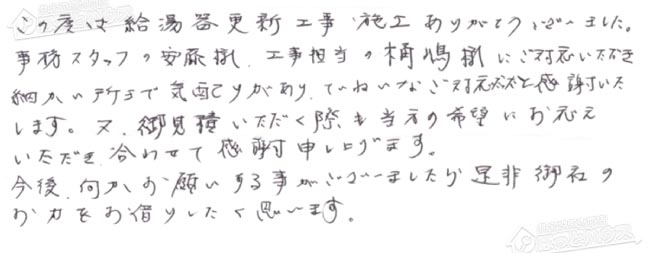 この度は給湯器更新工事、施工ありがとうございました。
事務スタッフの安藤様、工事担当の桶嶋様にご対応いただき
細かい所まで気配りがあり、ていねいなご対応だったと感謝いた
します。又、御見積いただく際も当方の希望にお応え
いただき、合わせて感謝申し上げます。
今後、何かお願いする事がございましたら是非御社の
お力をお借りしたく思います。